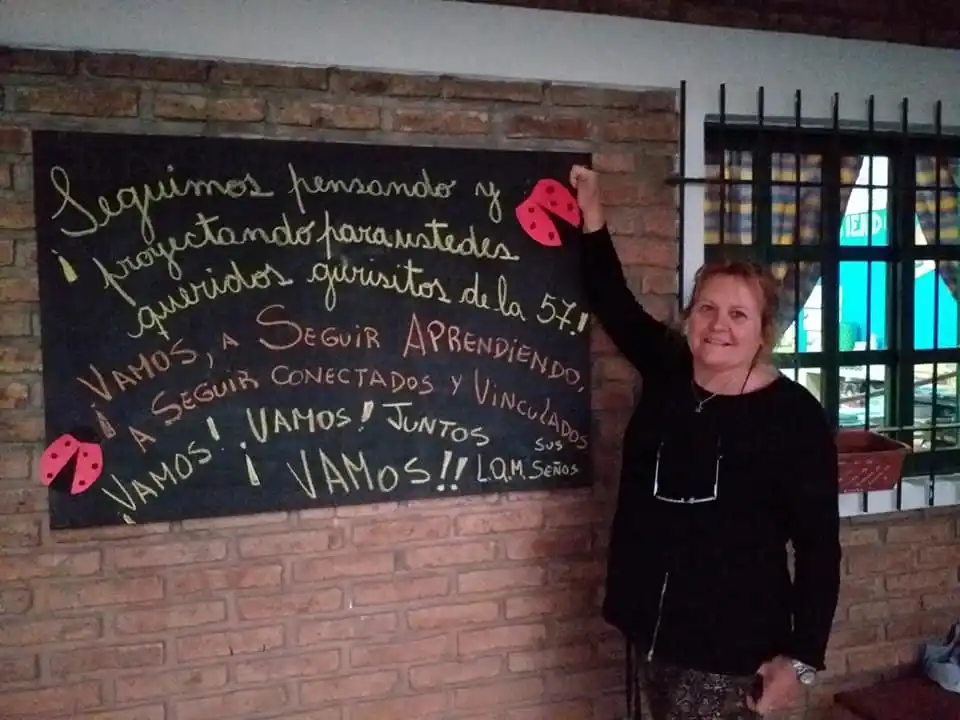 Seguimos pensando y
¡ proyectando para ustedes
queridos gurisitos de la 57.!
¡VAMOS, A SEGUIR APRENDIENDO,
A SEGUIR CONECTADOS Y VINCULADOS
¡VAMOS! ¡VAMOS! JUNTOS SUS
¡VAMOS!! L.Q.M. SEÑOS